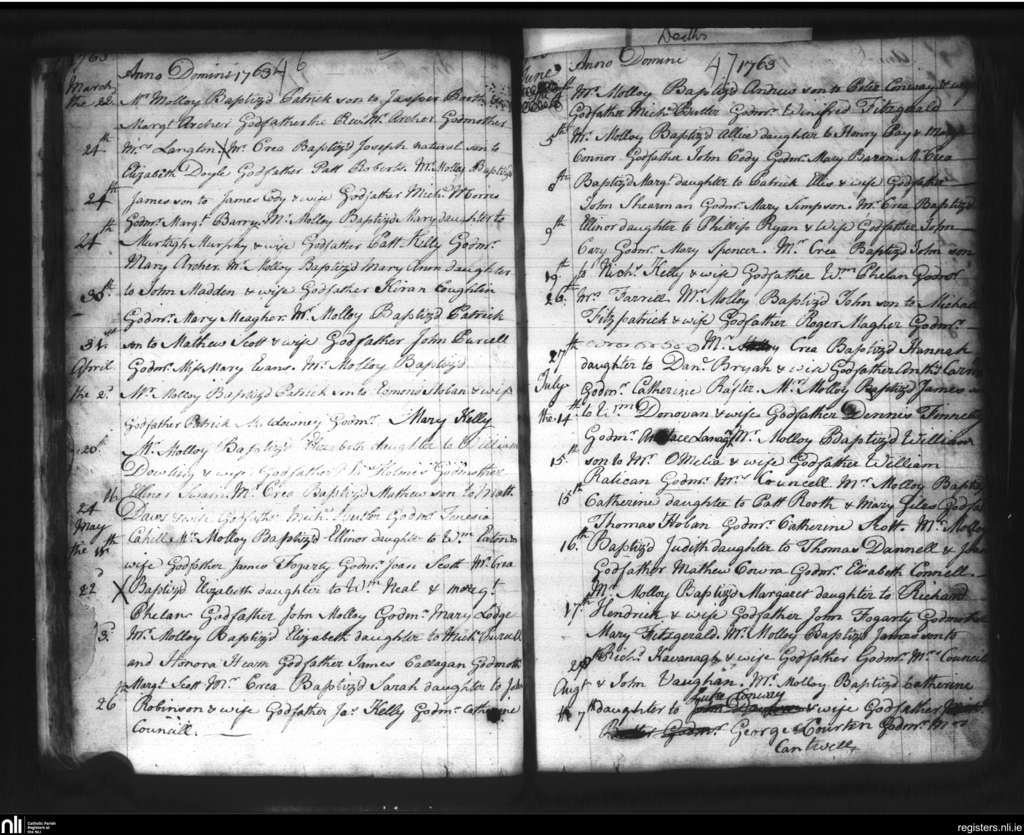 1763
Anno Domini 1763 46
March
the 22. Mr Molloy Baptizd Patrick son to Jasper
Margt Archer Godfather the Revd Mr Archer Godmother
24th Mrs Langton X Mr Crea Baptizd Joseph natural son to
Elizabeth Doyle Godfather Patt Roberts. Mr Molloy Baptizd
24th James son to James Cody & wife Godfather Michl Morres
Godmr Margt Barry. Mr Molloy Baptizd Mary daughter to
24th Murtagh Murphy & wife Godfather Patt Kelly Godmr
Mary Archer. Mr Molloy Baptizd Mary Ann daughter
30th to John Madden & wife Godfather Kiran Coughlin
Godmr Mary Meagher. Mr Molloy Baptizd Patrick
31st son to Mathew Scott & wife Godfather John Purcell
April Godmr Miss Mary Evans. Mr Molloy Baptizd
the 2d Mr Molloy Baptizd Patrick son to Edmond Nolan & wife
Godfather Patrick Muldowney Godmr Mary Kelly
20th Mr Molloy Baptizd Elizabeth daughter to William
Dowling & wife Godfather Godmother
16 Ellinor Mr Crea Baptizd Mathew son to Matt
24 Daws & wife Godfather Michl Godmr
May Cahell Mr Molloy Baptizd Ellinor daughter to Wm
the wife Godfather James Fogarty Godmr Joan Scott Mr Crea
22d X Baptizd Elizabeth daughter to Wm Neal & Margt
Phelan Godfather John Molloy Godmr Mary Lodge
Mr Molloy Baptizd Elizabeth daughter to Michl Purcell
and Honora Hearn Godfather James Callagan Godmoth
Margt Scott Mr Crea Baptizd Sarah daughter to John
26 Robinson & wife Godfather Jas Kelly Godmr Catherine
Council.
Deaths
Anno Domine 47 1763
June
Mr Molloy Baptizd Andrew son to Peter Conway & wife
Godfather Michl Butler Godmr Winifred Fitzgerald
5th Mr Molloy Baptizd Allice daughter to Henry Pay & Mary
Connor Godfather John Cody Godmr Mary Baron Mr Crea
8th Baptizd Margt daughter to Patrick Ellis & wife Godfather
John Shearman Godmr Mary Simpson. Mr Crea Baptizd
9th Ellinor daughter to Phillip Ryan & Wife Godfather John
Cary Godmr Mary Spencer. Mr Crea Baptizd John son
19th to Richd Kelly & wife Godfather Wm Phelan Godmr
26th Mrs Farrell Mr Molloy Baptizd John son to Michal
Fitzpatrick & wife Godfather Roger Magher Godmr
27th Mr Crea Baptizd Hannah
daughter to Danl Bryan & wife Godfather
July Godmr Catherine Rafter. Mr Molloy Baptizd James
the 14th to Wm Donovan & wife Godfather Dennis
Godmr Mr Molloy Baptizd William
15th son to Mr OMelia & wife Godfather William
Ralican Godmr Mrs Councell Mr Molloy Baptizd
15th Catherine daughter to Patt Rooth & Mary Giles Godfa
Thomas Holan Godmr Catherine Scott. Mr Molloy
16th Baptizd Judith daughter to Thomas Dannell &
Godfather Mathew Cowra Godmr Elizabeth Connell
Mr Molloy Baptizd Margaret daughter to Richard
17th Hendrick & wife Godfather John Fogarty Godmother
Mary Fitzgerald. Mr Molloy Baptizd James son to
Richd Kavanagh & wife Godfather Godmr Mrs Council
Augt & John Vaughan. Mr Molloy Baptizd Catherine
Conway
th 7th daughter to & wife Godfather
Godmr George Courten Godmr
Cantwell
nli Catholic Parish Registers at the NLI
registers.nli.ie